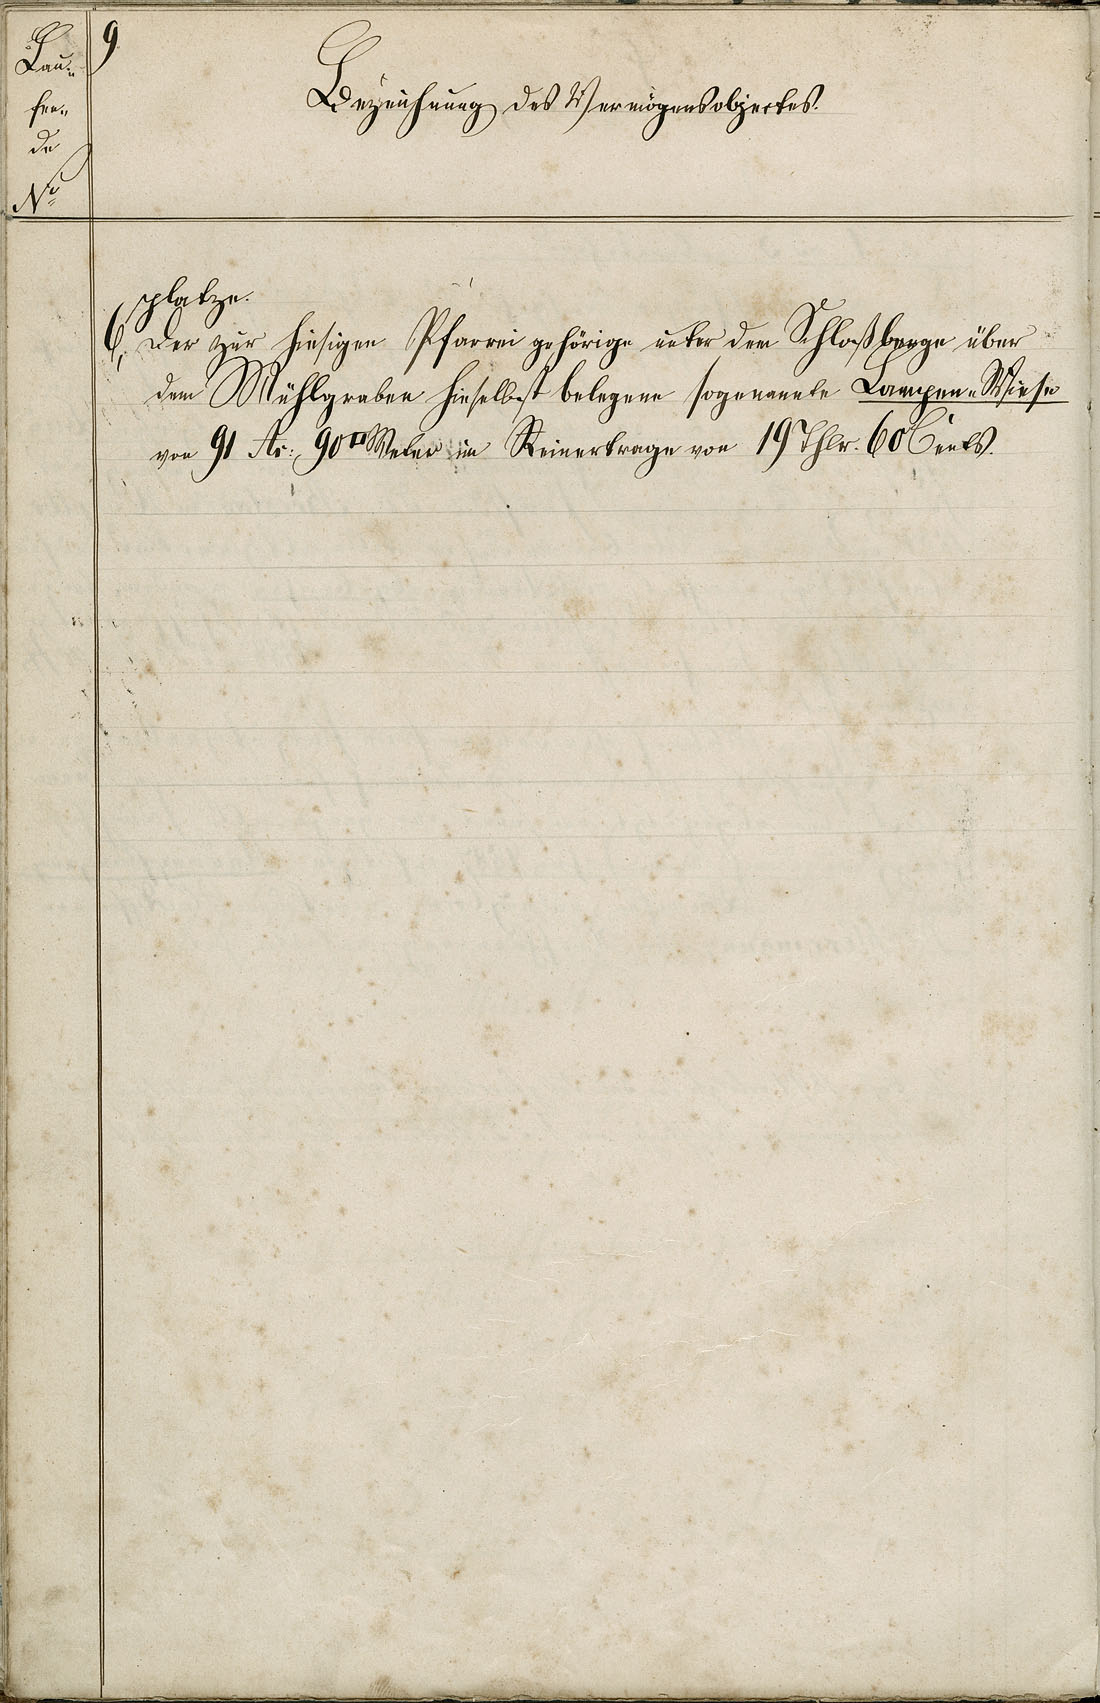 9
Lau-
fen-
de
No
Bezeichnung des Vermögensobjectes.
splatze.
6, Der zur hiesigen Pfarrei gehörige unter dem Schloßberge über
dem Mühlgraben hieselbst belegene sogenannte Lampen-Wiese
von 91 Ar: 90 □Meter im Reinertrage von 19 Thlr. 60 Cents.